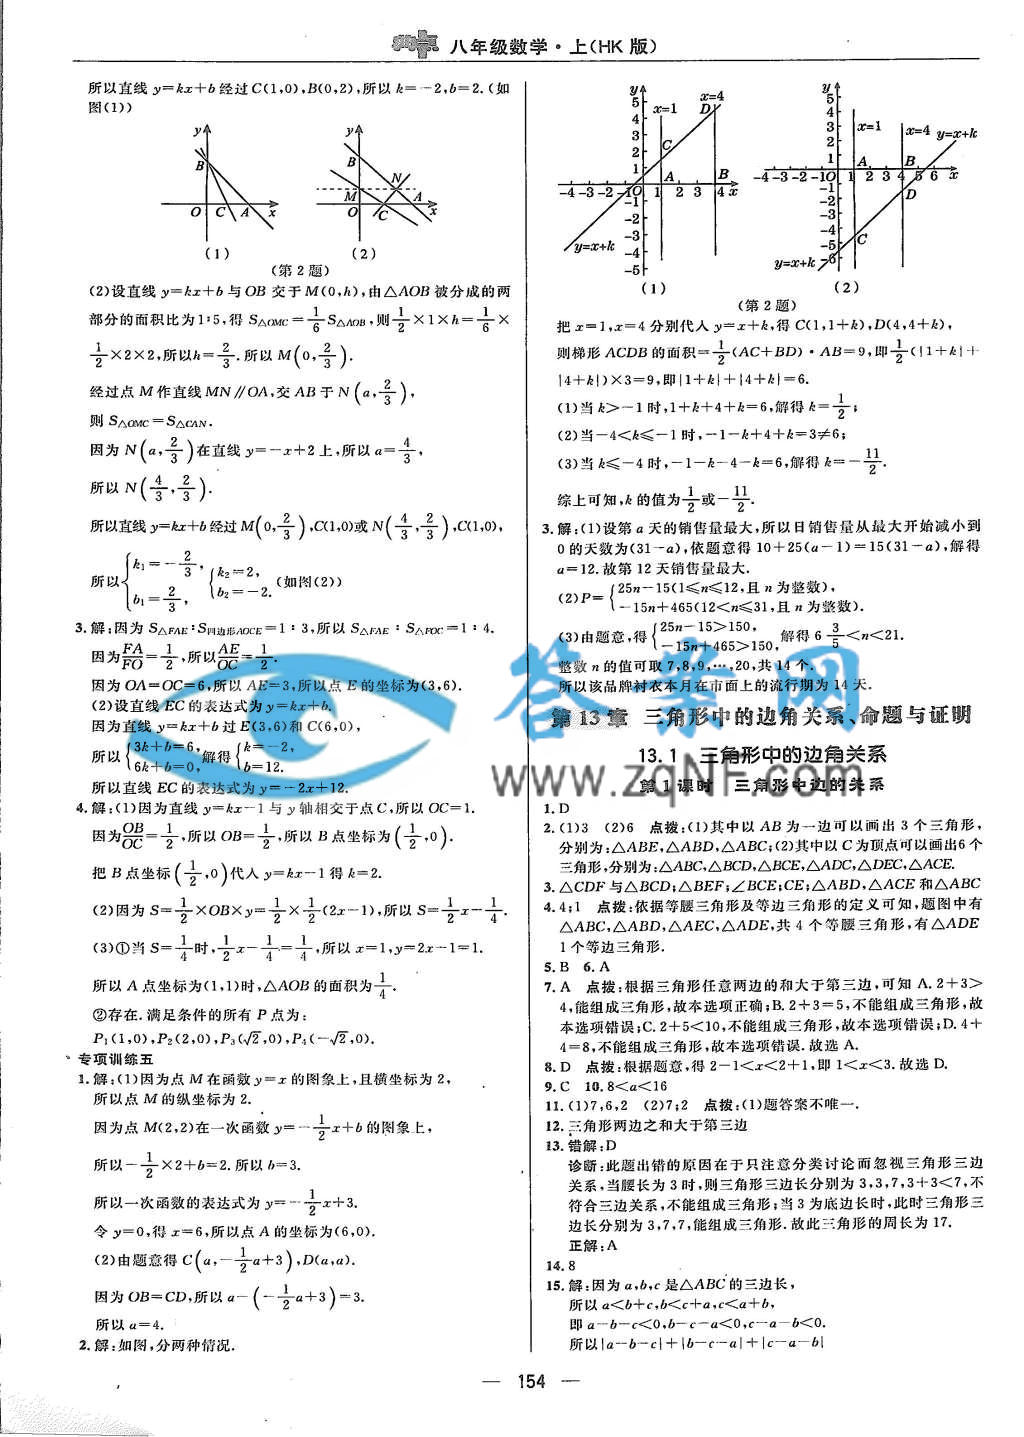 八年级数学·上(HK版)
所以直线 y=kx+b 经过 C(1,0),B(0,2),所以 k=-2,b=2.(如
图(1))
y B O C A x
(1)
y B N M A O C x
(2)
(第 2 题)
(2)设直线 y=kx+b 与 OB 交于 M(0,h),由△AOB 被分成的两
部分的面积比为 1:5,得 S△OMC=1/6 S△AOB,则 1/2×1×h=1/6×
1/2×2×2,所以h=2/3.所以 M(0,2/3).
经过点 M 作直线 MN∥OA,交 AB 于 N(a,2/3),
则 S△OMC=S△CAN.
因为 N(a,2/3)在直线 y=-x+2 上,所以 a=4/3,
所以 N(4/3,2/3).
所以直线 y=kx+b 经过 M(0,2/3),C(1,0)或 N(4/3,2/3),C(1,0),
所以{k₁=-2/3, b₁=2/3, {k₂=2, b₂=-2. (如图(2))
3.解:因为 S△FAE:S四边形AOCE=1:3,所以 S△FAE:S△FOC=1:4.
因为FA/FO=1/2,所以AE/OC=1/2.
因为 OA=OC=6,所以 AE=3,所以点 E 的坐标为(3,6).
(2)设直线 EC 的表达式为 y=kx+b.
因为直线 y=kx+b 过 E(3,6)和 C(6,0),
所以{3k+b=6, 6k+b=0, 解得{k=-2, b=12.
所以直线 EC 的表达式为 y=-2x+12.
4.解:(1)因为直线 y=kx-1 与 y 轴相交于点 C,所以 OC=1.
因为OB/OC=1/2,所以 OB=1/2,所以 B 点坐标为(1/2,0).
把 B 点坐标(1/2,0)代入 y=kx-1 得 k=2.
(2)因为 S=1/2×OB×y=1/2×1/2(2x-1),所以 S=1/2x-1/4.
(3)①当 S=1/4时,1/2x-1/4=1/4,所以 x=1,y=2x-1=1.
所以 A 点坐标为(1,1)时,△AOB 的面积为1/4.
②存在.满足条件的所有 P 点为:
P₁(1,0),P₂(2,0),P₃(√2,0),P₄(-√2,0).
专项训练五
1.解:(1)因为点 M 在函数 y=x 的图象上,且横坐标为 2,
所以点 M 的纵坐标为 2.
因为点 M(2,2)在一次函数 y=-1/2x+b 的图象上,
所以-1/2×2+b=2.所以 b=3.
所以一次函数的表达式为 y=-1/2x+3.
令 y=0,得 x=6,所以点 A 的坐标为(6,0).
(2)由题意得 C(a,-1/2a+3),D(a,a).
因为 OB=CD,所以 a-(-1/2a+3)=3.
所以 a=4.
2.解:如图,分两种情况.
y 5 4 3 2 1 x=1 x=4 D C A B
-4 -3 -2 -1 O 1 2 3 4 x
-1 -2 -3 -4 -5 y=x+k
(1)
y 5 4 3 2 1 x=1 x=4 y=x+k A B
-4 -3 -2 -1 O 1 2 3 4 5 6 x
-1 -2 -3 -4 -5 -6 D C y=x+k
(2)
(第 2 题)
把 x=1,x=4 分别代入 y=x+k,得 C(1,1+k),D(4,4+k),
则梯形 ACDB 的面积=1/2(AC+BD)·AB=9,即1/2(|1+k|+
|4+k|)×3=9,即|1+k|+|4+k|=6.
(1)当 k>-1 时,1+k+4+k=6,解得 k=1/2;
(2)当-4<k≤-1 时,-1-k+4+k=3≠6;
(3)当 k≤-4 时,-1-k-4-k=6,解得 k=-11/2.
综上可知,k 的值为1/2或-11/2.
3.解:(1)设第 a 天的销售量最大,所以日销售量从最大开始减小到
0 的天数为(31-a),依题意得 10+25(a-1)=15(31-a),解得
a=12.故第 12 天销售量最大.
(2)P={25n-15(1≤n≤12,且 n 为整数), -15n+465(12<n≤31,且 n 为整数).
(3)由题意,得{25n-15>150, -15n+465>150, 解得 6 3/5<n<21.
整数 n 的值可取 7,8,9,…,20,共 14 个.
所以该品牌衬衣本月在市面上的流行期为 14 天.
第 13 章 三角形中的边角关系、命题与证明
13.1 三角形中的边角关系
第 1 课时 三角形中边的关系
1.D
2.(1)3 (2)6 点拨:(1)其中以 AB 为一边可以画出 3 个三角形,
分别为:△ABE,△ABD,△ABC;(2)其中以 C 为顶点可以画出6个
三角形,分别为:△ABC,△BCD,△BCE,△ADC,△DEC,△ACE.
3.△CDF 与△BCD;△BEF;∠BCE;CE;△ABD,△ACE 和△ABC
4.4;1 点拨:依据等腰三角形及等边三角形的定义可知,题图中有
△ABC,△ABD,△AEC,△ADE,共 4 个等腰三角形,有△ADE
1 个等边三角形.
5.B 6.A
7.A 点拨:根据三角形任意两边的和大于第三边,可知 A.2+3>
4,能组成三角形,故本选项正确;B.2+3=5,不能组成三角形,故
本选项错误;C.2+5<10,不能组成三角形,故本选项错误;D.4+
4=8,不能组成三角形,故本选项错误.故选 A.
8.D 点拨:根据题意,得 2-1<x<2+1,即 1<x<3.故选 D.
9.C 10.8<a<16
11.(1)7,6,2 (2)7;2 点拨:(1)题答案不唯一.
12.三角形两边之和大于第三边
13.错解:D
诊断:此题出错的原因在于只注意分类讨论而忽视三角形三边
关系,当腰长为 3 时,则三角形三边长分别为 3,3,7,3+3<7,不
符合三边关系,不能组成三角形;当 3 为底边长时,此时三角形三
边长分别为 3,7,7,能组成三角形.故此三角形的周长为 17.
正解:A
14.8
15.解:因为 a,b,c 是△ABC 的三边长,
所以 a<b+c,b<c+a,c<a+b,
即 a-b-c<0,b-c-a<0,c-a-b<0.
所以|a-b-c|+|b-c-a|+|c-a-b|
答案网
www.zqnf.com
— 154 —